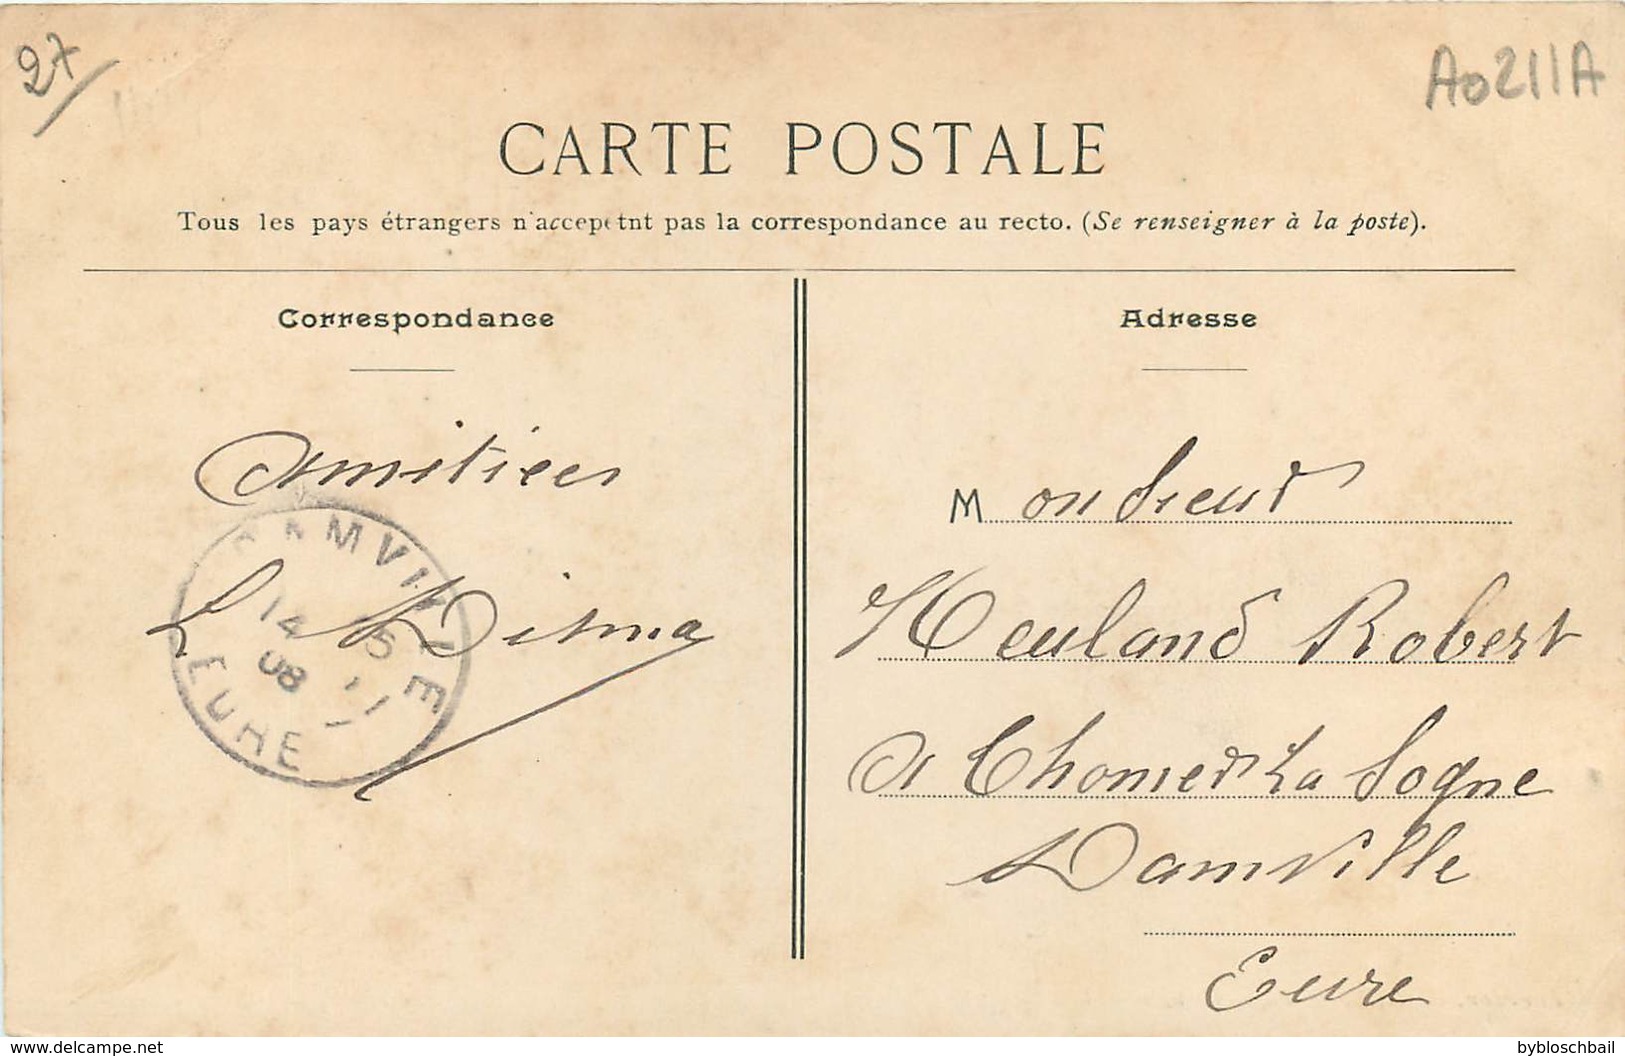 27/
A0211A
CARTE POSTALE
Tous les pays étrangers n'acceptnt pas la correspondance au recto. (Se renseigner à la poste).
Correspondance
Amitiées
L
DAMVILLE
14 15
08
EURE
Adresse
Monsieur
Heuland Robert
A Chomer La Sogne
Damville
Eure
www.delcampe.net
bybloschbail